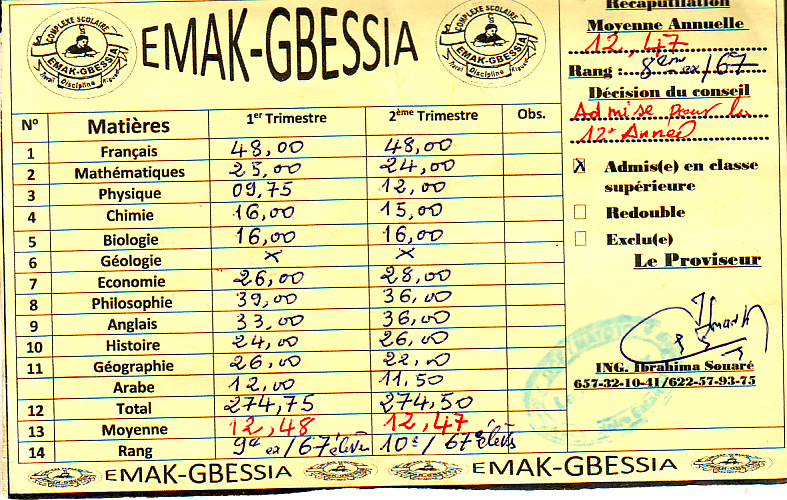 COMPLEXE SCOLAIRE
EMAK-GBESSIA
Travail Discipline Rigueur
EMAK-GBESSIA
COMPLEXE SCOLAIRE
EMAK-GBESSIA
Travail Discipline Rigueur
N° Matières 1er Trimestre 2ème Trimestre Obs.
1 Français 48,00 48,00
2 Mathématiques 25,00 24,00
3 Physique 09,75 12,00
4 Chimie 16,00 15,00
5 Biologie 16,00 16,00
6 Géologie x x
7 Economie 26,00 28,00
8 Philosophie 39,00 36,00
9 Anglais 33,00 36,00
10 Histoire 24,00 26,00
11 Géographie 26,00 22,00
Arabe 12,00 11,50
12 Total 274,75 274,50
13 Moyenne 12,48 12,47
14 Rang 9e ex / 67 élèves 10e / 67 élèves
EMAK-GBESSIA EMAK-GBESSIA
Récapitulation
Moyenne Annuelle
12,47
Rang :... 8em ex / 67
Décision du conseil
Admise pour la
12e Année
X Admis(e) en classe
supérieure
Redouble
Exclu(e)
Le Proviseur
ING. Ibrahima Souaré
657-32-10-41/622-57-93-75